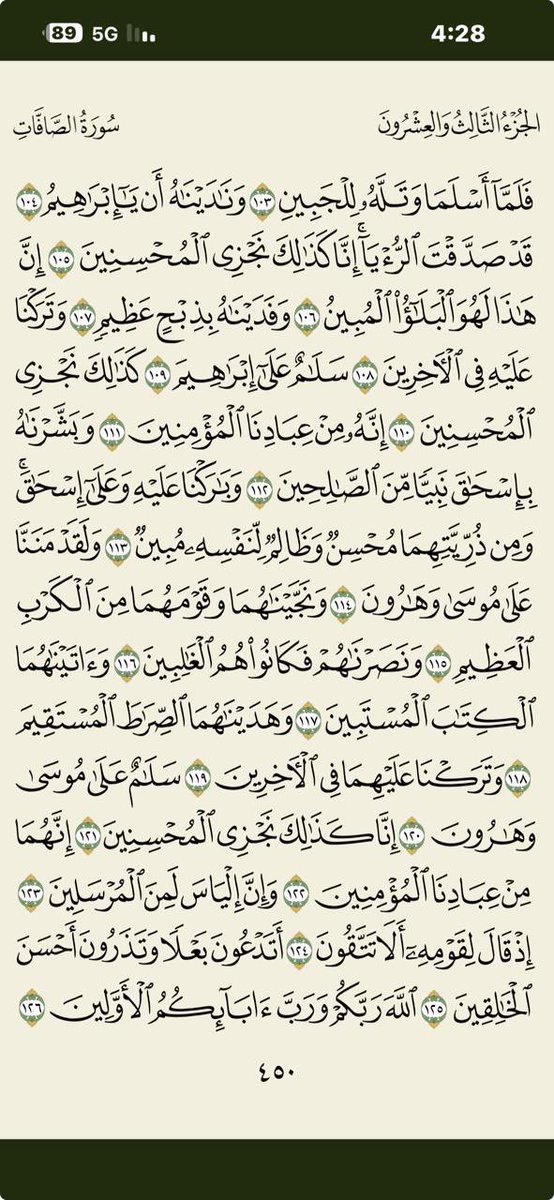 89 5G 4:28
الجُزْءُ الثَّالِثُ وَالعِشْرُونَ سُورَةُ الصَّافَّاتِ
فَلَمَّآ أَسۡلَمَا وَتَلَّهُۥ لِلۡجَبِينِ ١٠٣ وَنَٰدَيۡنَٰهُ أَن يَٰٓإِبۡرَٰهِيمُ ١٠٤
قَدۡ صَدَّقۡتَ ٱلرُّءۡيَآۚ إِنَّا كَذَٰلِكَ نَجۡزِي ٱلۡمُحۡسِنِينَ ١٠٥ إِنَّ
هَٰذَا لَهُوَ ٱلۡبَلَٰٓؤُاْ ٱلۡمُبِينُ ١٠٦ وَفَدَيۡنَٰهُ بِذِبۡحٍ عَظِيمٖ ١٠٧ وَتَرَكۡنَا
عَلَيۡهِ فِي ٱلۡأٓخِرِينَ ١٠٨ سَلَٰمٌ عَلَىٰٓ إِبۡرَٰهِيمَ ١٠٩ كَذَٰلِكَ نَجۡزِي
ٱلۡمُحۡسِنِينَ ١١٠ إِنَّهُۥ مِنۡ عِبَادِنَا ٱلۡمُؤۡمِنِينَ ١١١ وَبَشَّرۡنَٰهُ
بِإِسۡحَٰقَ نَبِيّٗا مِّنَ ٱلصَّٰلِحِينَ ١١٢ وَبَٰرَكۡنَا عَلَيۡهِ وَعَلَىٰٓ إِسۡحَٰقَۚ
وَمِن ذُرِّيَّتِهِمَا مُحۡسِنٞ وَظَالِمٞ لِّنَفۡسِهِۦ مُبِينٞ ١١٣ وَلَقَدۡ مَنَنَّا
عَلَىٰ مُوسَىٰ وَهَٰرُونَ ١١٤ وَنَجَّيۡنَٰهُمَا وَقَوۡمَهُمَا مِنَ ٱلۡكَرۡبِ
ٱلۡعَظِيمِ ١١٥ وَنَصَرۡنَٰهُمۡ فَكَانُواْ هُمُ ٱلۡغَٰلِبِينَ ١١٦ وَءَاتَيۡنَٰهُمَا
ٱلۡكِتَٰبَ ٱلۡمُسۡتَبِينَ ١١٧ وَهَدَيۡنَٰهُمَا ٱلصِّرَٰطَ ٱلۡمُسۡتَقِيمَ
١١٨ وَتَرَكۡنَا عَلَيۡهِمَا فِي ٱلۡأٓخِرِينَ ١١٩ سَلَٰمٌ عَلَىٰ مُوسَىٰ
وَهَٰرُونَ ١٢٠ إِنَّا كَذَٰلِكَ نَجۡزِي ٱلۡمُحۡسِنِينَ ١٢١ إِنَّهُمَا
مِنۡ عِبَادِنَا ٱلۡمُؤۡمِنِينَ ١٢٢ وَإِنَّ إِلۡيَاسَ لَمِنَ ٱلۡمُرۡسَلِينَ ١٢٣
إِذۡ قَالَ لِقَوۡمِهِۦٓ أَلَا تَتَّقُونَ ١٢٤ أَتَدۡعُونَ بَعۡلٗا وَتَذَرُونَ أَحۡسَنَ
ٱلۡخَٰلِقِينَ ١٢٥ ٱللَّهَ رَبَّكُمۡ وَرَبَّ ءَابَآئِكُمُ ٱلۡأَوَّلِينَ ١٢٦
٤٥٠